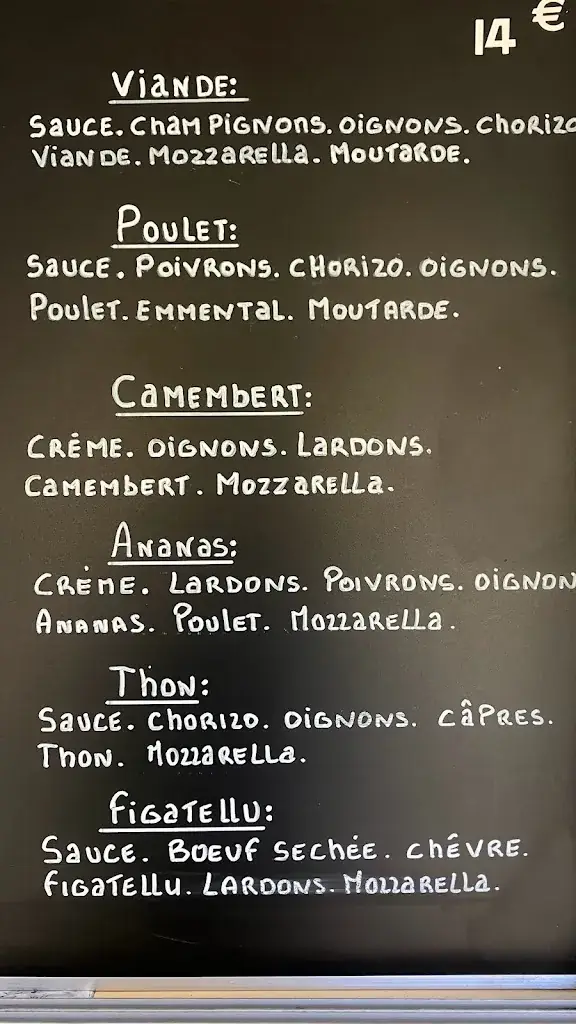 14 €
Viande:
Sauce. Champignons. Oignons. Chorizo
Viande. Mozzarella. Moutarde.
Poulet:
Sauce. Poivrons. Chorizo. Oignons.
Poulet. Emmental. Moutarde.
Camembert:
Crème. Oignons. Lardons.
Camembert. Mozzarella.
Ananas:
Crème. Lardons. Poivrons. Oignon
Ananas. Poulet. Mozzarella.
Thon:
Sauce. Chorizo. Oignons. Câpres.
Thon. Mozzarella.
Figatellu:
Sauce. Boeuf sechée. Chêvre.
Figatellu. Lardons. Mozzarella.